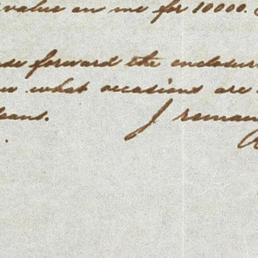 value on me for 10000.
forward the enclosure
what occasions are
I remain